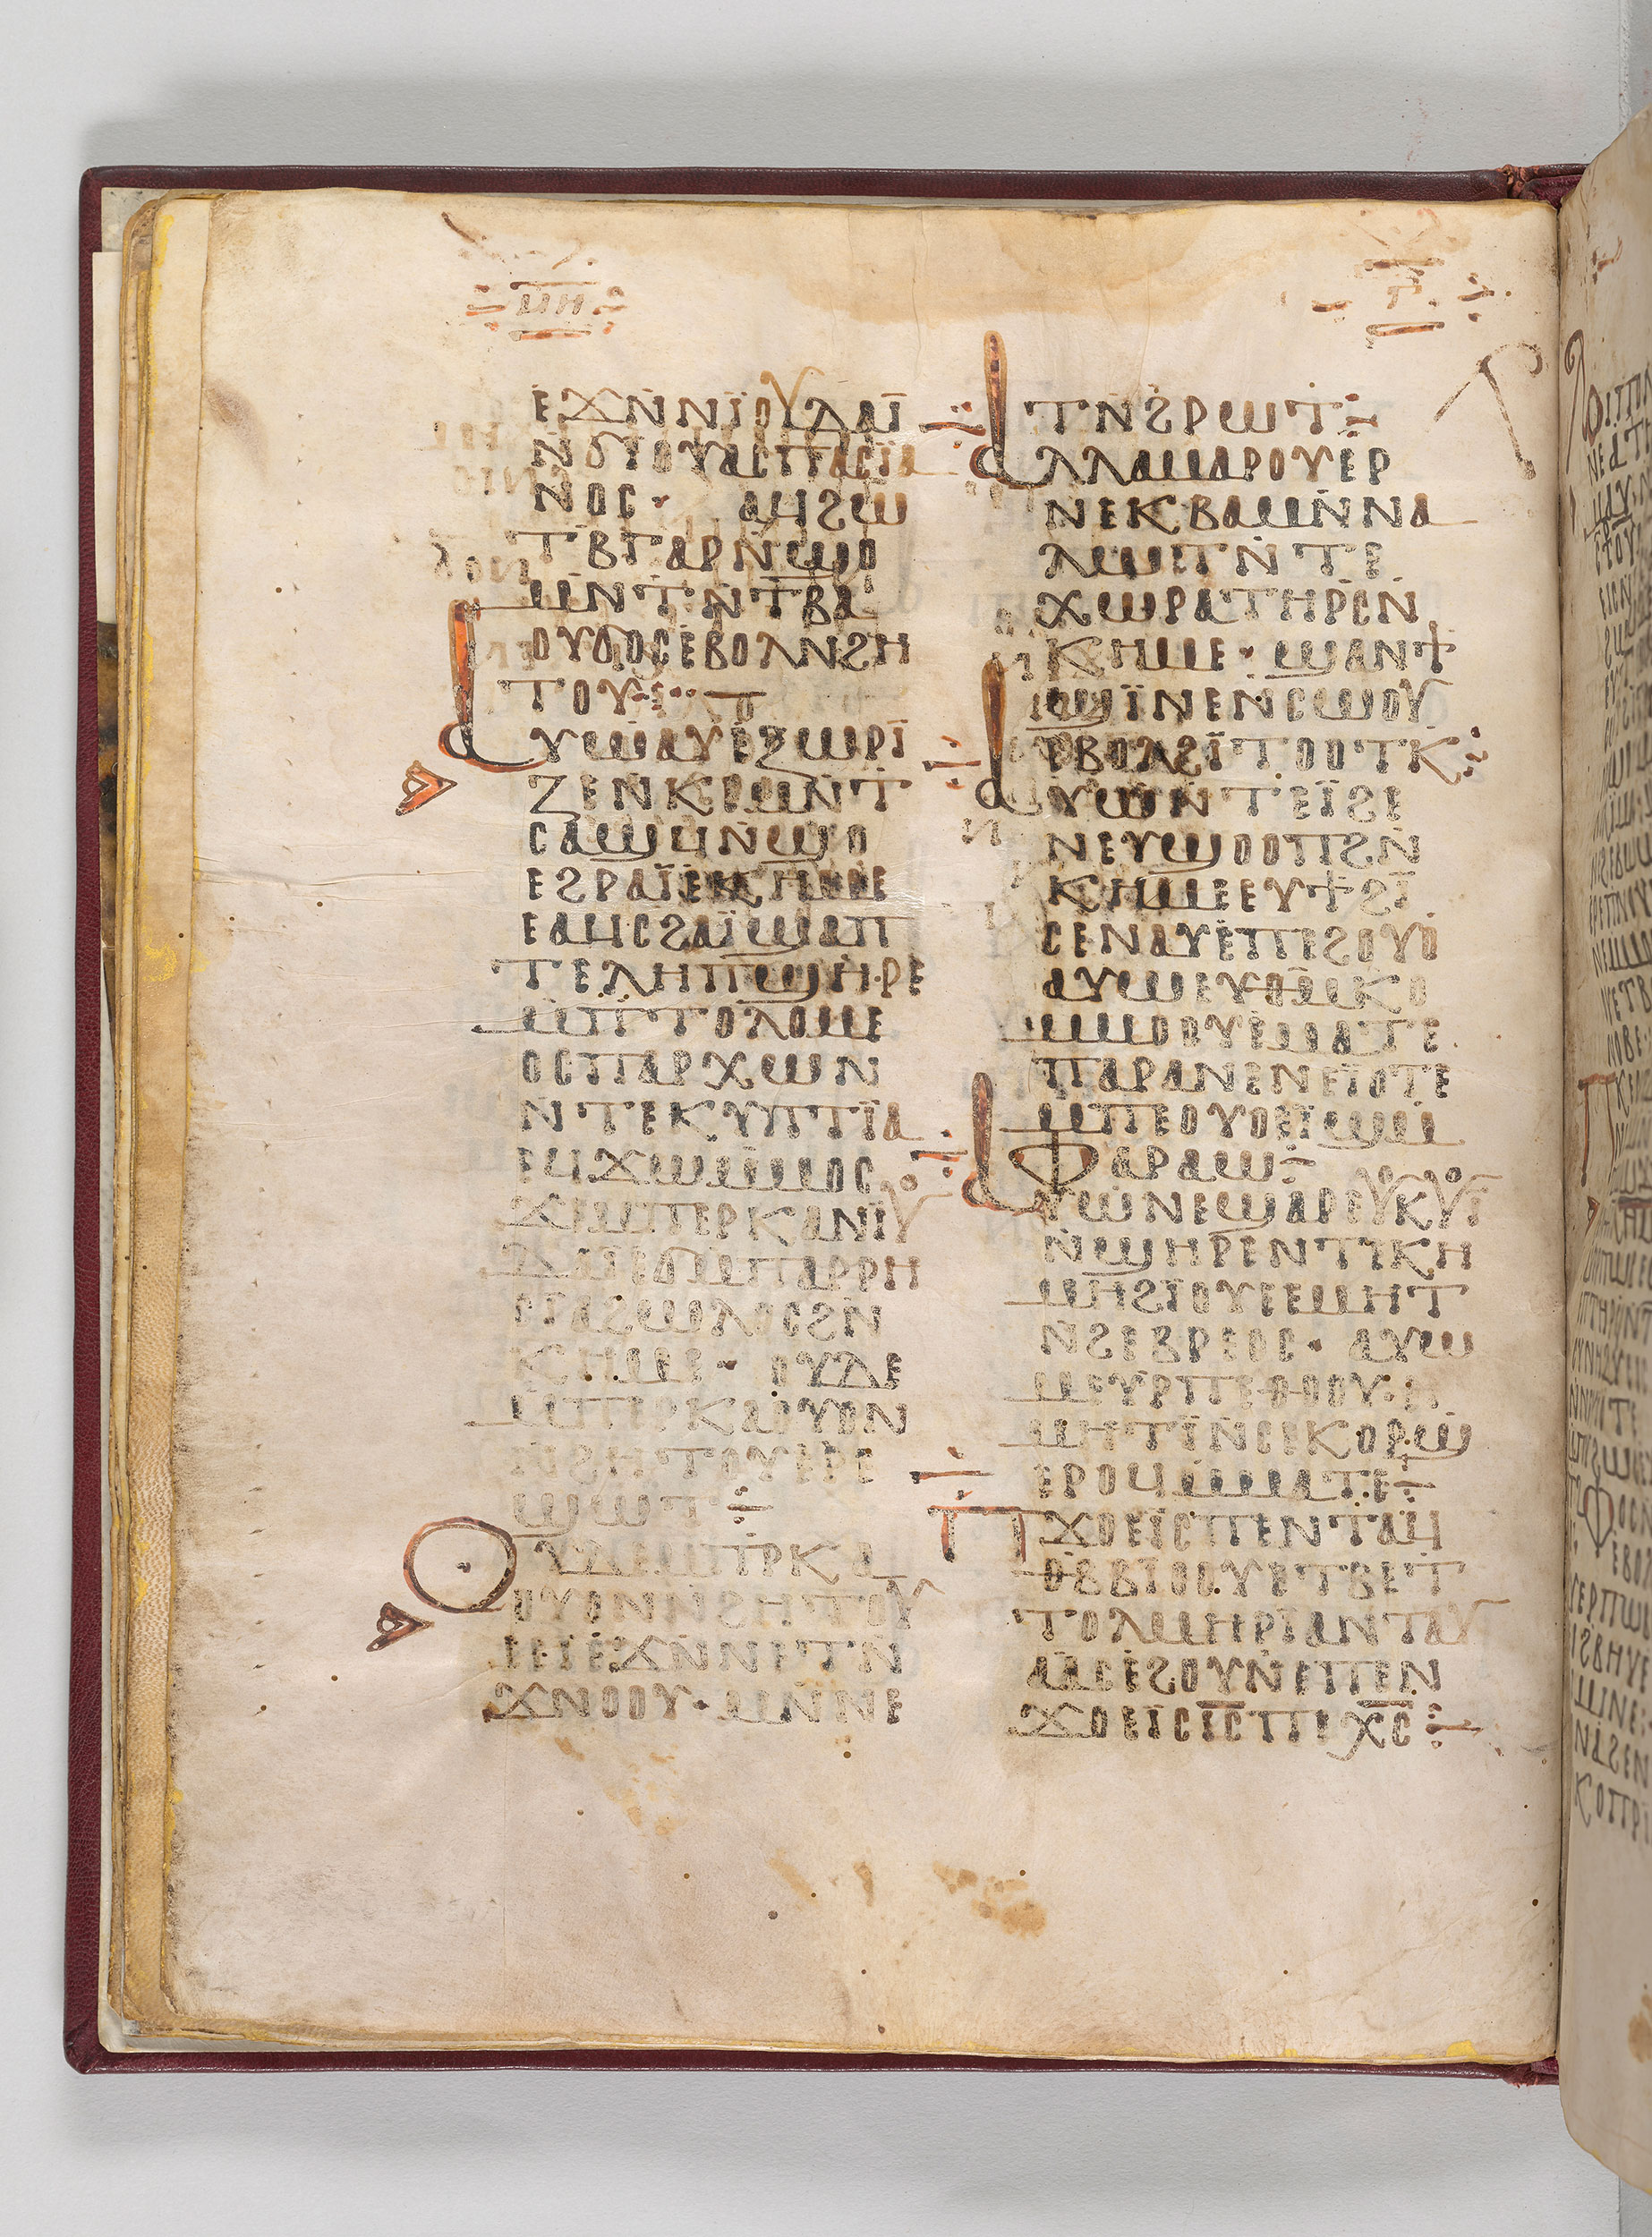 ⲙⲏ
ⲉϫⲛ̀ⲛⲓ̈ⲟⲩⲇⲁⲓ̈
ⲛ̀ϭⲓⲟⲩⲁⲥⲡⲁⲥⲓ̈ⲁ
ⲛⲟⲥ· ⲁϥϩⲱ
ⲧⲃⲅⲁⲣⲛ̀ϣⲟ
ⲙⲛ̀ⲧⲛ̀ⲧⲃⲁ
ⲟⲩϭⲟⲥⲉ̀ⲃⲟⲗⲛϩⲏ
ⲧⲟⲩ
ⲁⲩⲱⲁⲩⲉ̀ϩⲱⲣⲓ̈
ⲍⲉⲛ̀ⲕⲟⲟⲩⲛ̀ⲧ
ⲥⲁϣϥⲛ̀ϣⲟ
ⲉϩⲣⲁⲓ̈ⲉⲕⲏⲙⲉ
ⲉⲁϥⲥϩⲁⲓ̈ϣⲁⲡ
ⲧⲉⲗⲏⲡϣⲏⲣⲉ
ⲙ̀ⲡⲧⲟⲗⲟⲙⲉ
ⲟⲥⲡⲁⲣⲭⲱⲛ
ⲛ̀ⲧⲉⲕⲩⲡⲧⲓ̈ⲁ
ⲉϥϫⲱⲙ̀ⲙⲟⲥ
ϫⲉⲙ̀ⲡⲉⲣⲕⲁⲛⲓ̈ⲟⲩ
ⲇⲁⲓ̈ⲉϭⲙ̀ⲡⲁⲣⲣⲏ
ⲥⲓⲁϩⲱⲗⲟⲥϩⲛ̀
ⲕⲏⲙⲉ· ⲟⲩⲇⲉ
ⲙ̀ⲡⲉⲣⲕⲁⲟⲩⲟⲛ
ⲛ̀ϩⲏⲧⲟⲩⲉ̀ⲣⲉ
ϣⲱⲧ
ⲟⲩⲇⲉⲙ̀ⲡⲣⲕⲁ
ⲟⲩⲟⲛⲛ̀ϩⲏⲧⲟⲩ
ⲉⲓⲉ̀ϫⲛ̀ⲛⲉⲧⲛ̀
ϫⲛⲟⲟⲩ· ⲙⲛ̀ⲛⲉ
ⲧⲛ̀ϩⲣⲱⲧ
ⲁⲗⲗⲁⲙⲁⲣⲟⲩⲉ̀ⲣ
ⲛⲉⲕⲃⲁⲙⲛ̀ⲛⲁ
ⲗⲱⲓⲧⲛ̀ⲧⲉ
ⲭⲱⲣⲁⲧⲏⲣⲥ̀ⲛ̀
ⲕⲏⲙⲉ· ϣⲁⲛϯ
ϣⲓ̈ⲛⲉⲛ̀ⲥⲱⲟⲩ
ⲉ̀ⲃⲟⲗϩⲓ̈ⲧⲟⲟⲧⲕ
ⲁⲩⲱⲛ̀ⲧⲉⲓ̈ϩⲉ
ⲛⲉⲩϣⲟⲟⲡϩⲛ̀
ⲕⲏⲙⲉⲉⲩϯϩⲓ̈
ⲥⲉⲛⲁⲩⲉ̀ⲡⲉϩⲟⲩⲟ̀
ⲁⲩⲱⲉⲩⲑⲙ̀ⲕⲟ
ⲙ̀ⲙⲟⲟⲩⲉ̀ⲙⲁⲧⲉ
ⲡⲁⲣⲁⲛⲉⲛⲉⲓ̈ⲟⲧⲉ
ⲙ̀ⲡⲉⲟⲩⲟⲉⲓ̈ϣⲙ̀
ⲫⲁⲣⲁⲱ
ⲁⲩⲱ̀ⲛⲉϣⲁⲣⲉⲟⲩⲕⲟⲩⲓ̈
ⲛ̀ϣⲏⲣⲉⲛ̀ⲧⲓ̈ⲕⲏ
ⲙⲏϩⲓⲟⲩⲉⲉⲙⲏⲧ
ⲛ̀ϩⲉⲃⲣⲉⲟⲥ· ⲁⲩⲱ
ⲙⲉⲩⲣⲡⲉⲑⲟⲟⲩ·
ⲙⲏⲧⲓ̈ⲛ̀ⲥⲉⲕⲟⲣϣ̀
ⲉⲣⲟϥⲙ̀ⲙⲁⲧⲉ
ⲡϫⲟⲉⲓ̈ⲥⲡⲉⲛⲧⲁϥ
ⲑⲃⲃⲓ̈ⲟⲟⲩⲉⲧⲃⲉⲧ
ⲧⲟⲗⲙⲏⲣⲓ̈ⲁⲛⲧⲁⲩ
ⲁⲁⲥⲉ̀ϩⲟⲩⲛⲉⲡⲉⲛ
ϫⲟⲉⲓ̈ⲥⲓ̅ⲥ̅ⲡⲉⲭ̅ⲥ̅